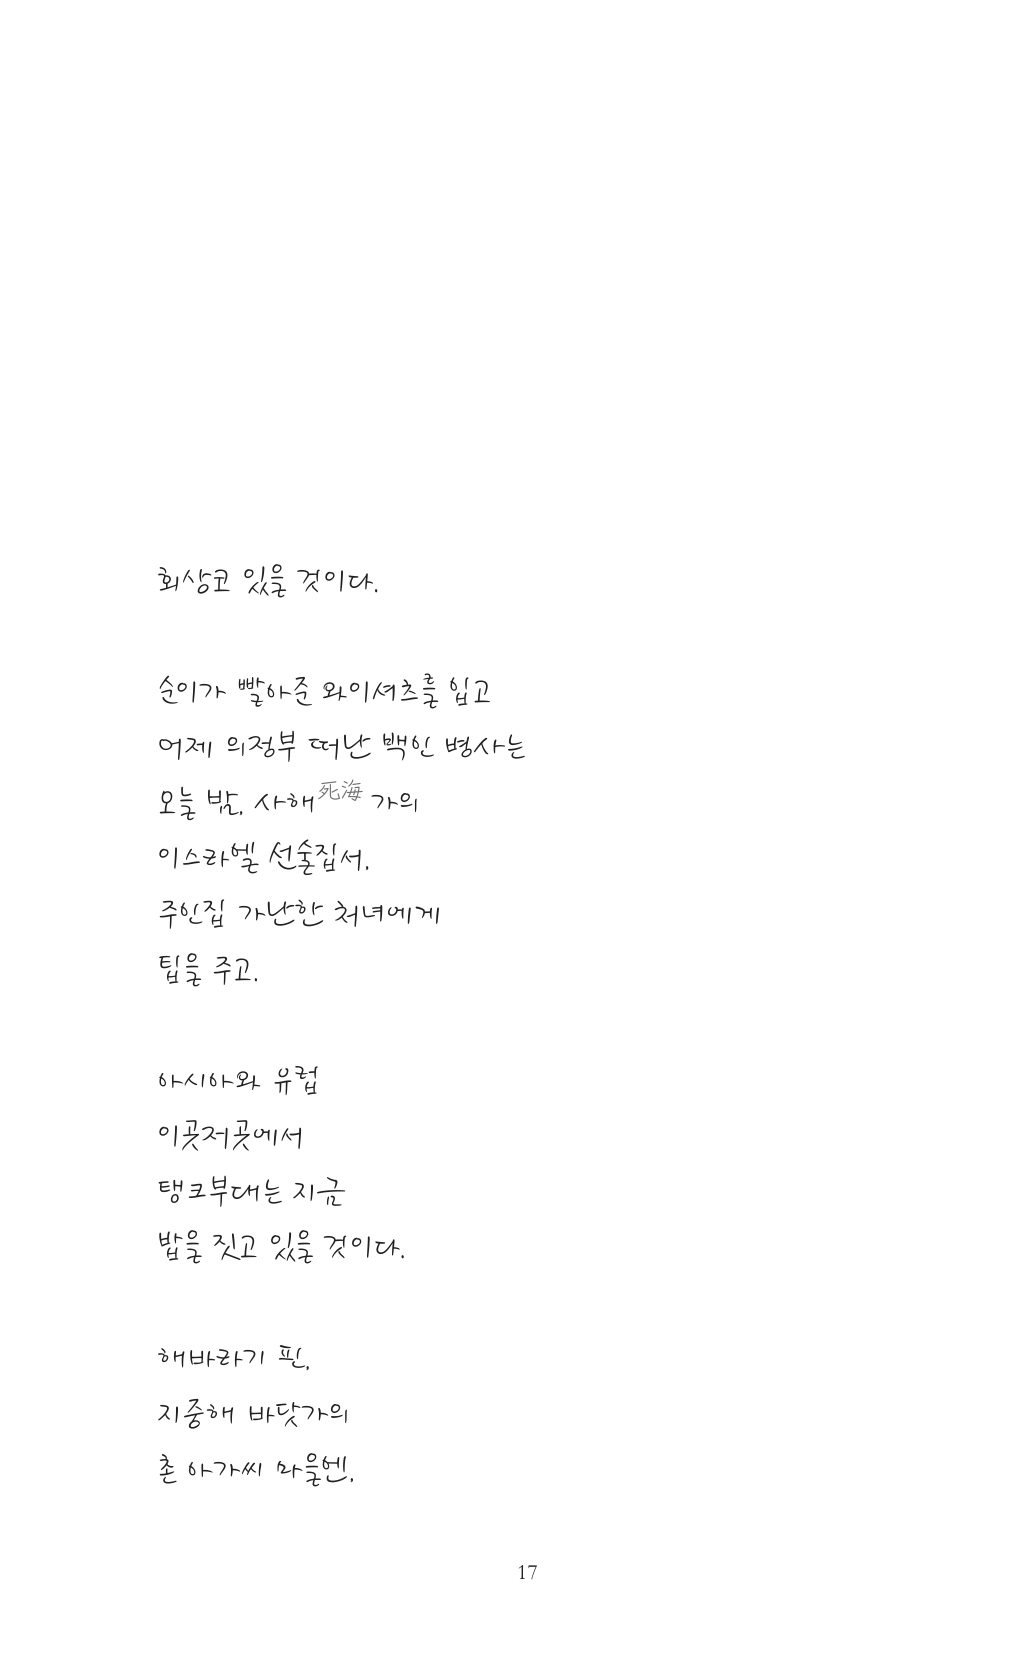 회상코 있을 것이다.
순이가 빨아준 와이셔츠를 입고
어제 의정부 떠난 백인 병사는
오늘 밤, 사해死海 가의
이스라엘 선술집서,
주인집 가난한 처녀에게
팁을 주고.
아시아와 유럽
이곳저곳에서
탱크부대는 지금
밥을 짓고 있을 것이다.
해바라기 핀,
지중해 바닷가의
촌 아가씨 마을엔,
17